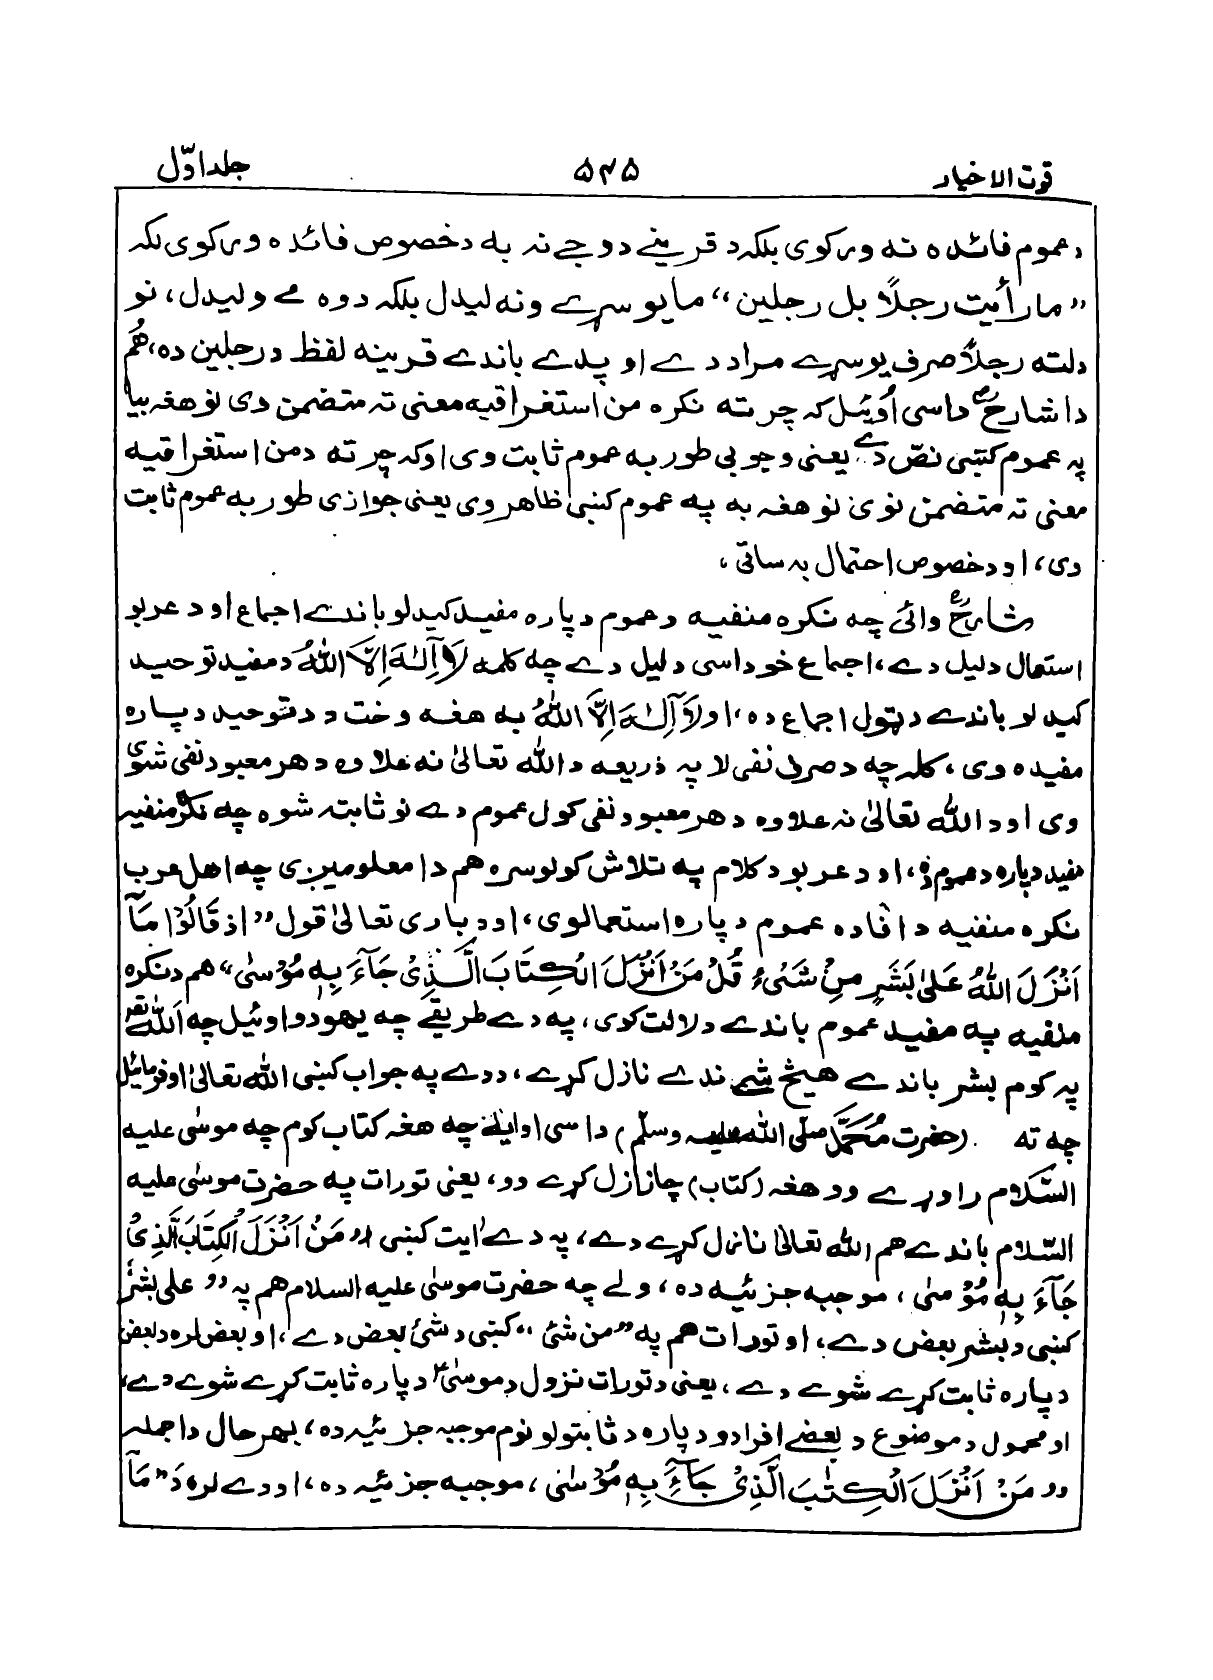 قوت الاخیار ۵۴۵ جلد اوّل
دعموم فائدہ نہ ورکوی بلکہ د قرینے دوجے نہ بہ دخصوص فائدہ ورکوی لکہ
”ما رأیت رجلاً بل رجلین“ ما یو سرے ونہ لیدل بلکہ دوہ مے ولیدل، نو
دلتہ رجلاً صرف یو سرے مراد دے او پدے باندے قرینہ لفظ د رجلین دہ، هم
دا شارحؒ داسی اوئیل کہ چرتہ نکرہ من استغراقیہ معنی تہ متضمن دی نو هغہ بیا
پہ عموم کښی نصّ دے یعنی وجوبی طور بہ عموم ثابت وی او کہ چرتہ دمن استغراقیہ
معنی تہ متضمن نوی نو هغہ بہ پہ عموم کښی ظاهر وی یعنی جوازی طور بہ عموم ثابت
دی، او دخصوص احتمال بہ ساتی،
شارحؒ وائی چہ نکرہ منفیہ دعموم دپارہ مفید کیدلو باندے اجماع او د عربو
استعمال دلیل دے، اجماع خو داسی دلیل دے چہ کلمہ لَا اِلٰہَ اِلَّا اللّٰہُ دمفید توحید
کیدلو باندے د ټولو اجماع دہ، او لَا اِلٰہَ اِلَّا اللّٰہُ بہ هغہ وخت د توحید دپارہ
مفیدہ وی، کلہ چہ د صرف نفی لا پہ ذریعہ د اللّٰہ تعالیٰ نہ علاوہ د هر معبود نفی شوی
وی او د اللّٰہ تعالیٰ نہ علاوہ د هر معبود نفی کول عموم دے نو ثابتہ شوہ چہ نکرہ منفیہ
مفید دپارہ دعموم، او د عربو دکلام پہ تلاش کولو سرہ هم دا معلومیږی چہ اهل عرب
نکرہ منفیہ د افادہ عموم دپارہ استعمالوی، او د باری تعالیٰ قول ”اذ قَالُوْا مَآ
اَنْزَلَ اللّٰہُ عَلٰی بَشَرٍ مِنْ شَیْءٍ قُلْ مَنْ اَنْزَلَ الْکِتَابَ الَّذِیْ جَآءَ بِہٖ مُوْسٰی“ هم د نکرہ
منفیہ پہ مفید عموم باندے دلالت کوی، پہ دے طریقے چہ یهودو اوئیل چہ اللّٰہ
پہ کوم بشر باندے هیڅ شی ندے نازل کړے، دوے پہ جواب کښی اللّٰہ تعالیٰ اوفرمائیل
چہ تہ (حضرت مُحَمَّد صلّی اللّٰہ علیہ وسلّم) داسی اوایہ چہ هغہ کتاب کوم چہ موسٰی علیہ
السّلام راوړے وو هغہ (کتاب) چا نازل کړے وو، یعنی تورات پہ حضرت موسٰی علیہ
السّلام باندے هم اللّٰہ تعالیٰ نازل کړے دے، پہ دے اٰیت کښی ”مَنْ اَنْزَلَ الْکِتَابَ الَّذِیْ
جَآءَ بِہٖ مُوْسٰی، موجبہ جزئیہ دہ، ولے چہ حضرت موسٰی علیہ السلام هم پہ ”علی بشرٍ
کښی د بشر بعض دے، او تورات هم پہ ”من شئ“ کښی د شئ بعض دے، او بعض لرہ د بعض
دپارہ ثابت کړے شوے دے، یعنی د تورات نزول د موسٰیؑ دپارہ ثابت کړے شوے دے،
او محمول د موضوع د بعضے افرادو دپارہ د ثابتولو نوم موجبہ جزئیہ دہ، بهرحال دا جملہ
”مَنْ اَنْزَلَ الْکِتٰبَ الَّذِیْ جَآءَ بِہٖ مُوْسٰی، موجبہ جزئیہ دہ، او دے لرہ دَ ”مَآ